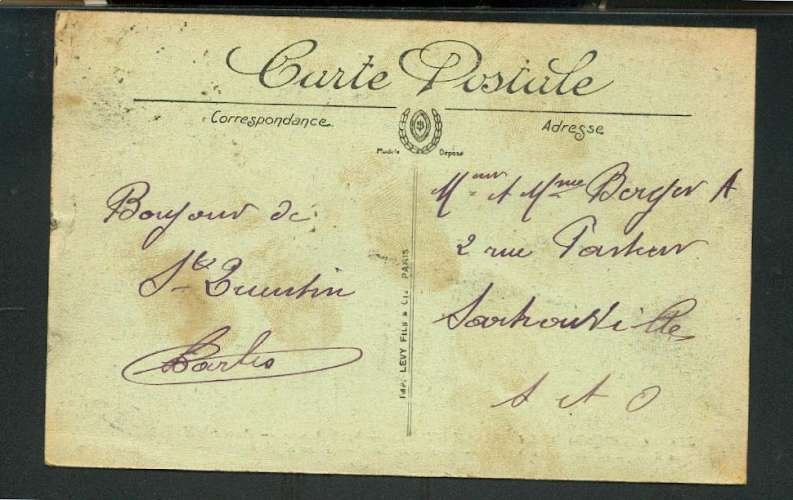 Carte Postale
Correspondance
Adresse
Modèle Déposé
Bonjour de
St Quentin
Meur et Mme Berger A
2 rue
Sartrouville
S et O
IMP. LEVY FILS & CIE, PARIS